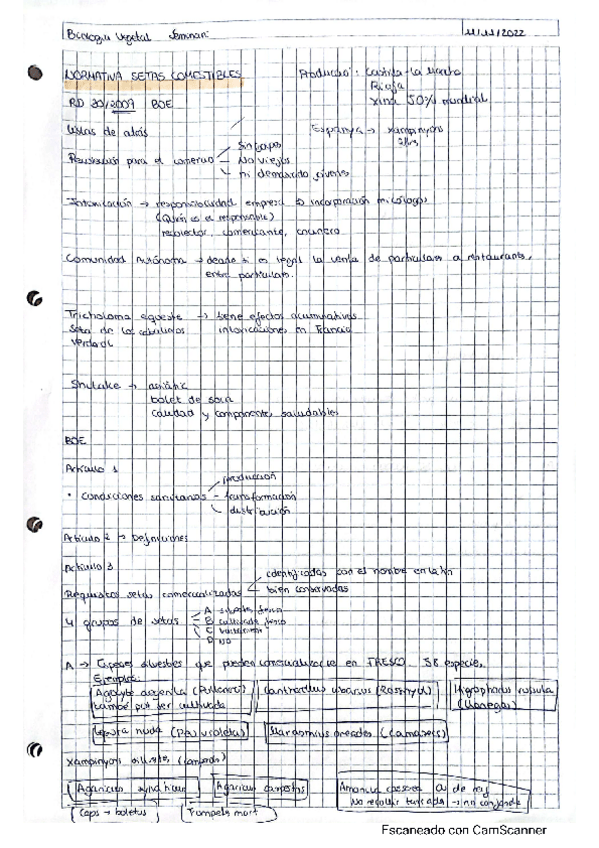 Biologia Vegetal Seminari
11/11/2022
NORMATIVA SETAS COMESTIBLES
Producció: Castilla-La Mancha
Rioja
xina 50% mundial
RD 30/2009 BOE
Espanya → xampinyons
Listas de
Sin capos
para el consumo No viejos
ni demasiado jóvenes
Intoxicación → responsabilidad empresa incorporación micólogos
(Quién es el responsable)
recolector, comerciante, cocinero
Comunidad Autónoma → decide si es legal la venta de particulares a restaurants,
entre particulares.
Tricholoma equestre → tiene efectos acumulativos
Seta de los caballeros intoxicaciones en Francia
Verderol
Shiitake → asiàtic
bolet de soca
calidad y componentes saludables
BOE
Artículo 1
producción
• condiciones sanitarias - transformación
distribución
Artículo 2 → Definiciones
Artículo 3
identificadas con el nombre en latín
Requisitos setas comercializadas bien conservadas
4 grupos de setas A silvestre fresca
B cultivada fresca
C
D NO
A → Especies silvestres que pueden comercializarse en FRESCO. 38 especies.
Ejemplos:
Agrocybe aegerita (Pollancró) Cantharellus cibarius (Rossinyol) Hygrophorus russula
també pot ser cultivada (Llenegas)
Lepista nuda (Pie violeta) Marasmius oreades (Camasecs)
xampinyons silvestres (camperols)
Agaricus Agaricus campestris Amanita caesarea Ou de reig
No recollir tancada → no confondre
Ceps → boletus Trompeta mort
Escaneado con CamScanner